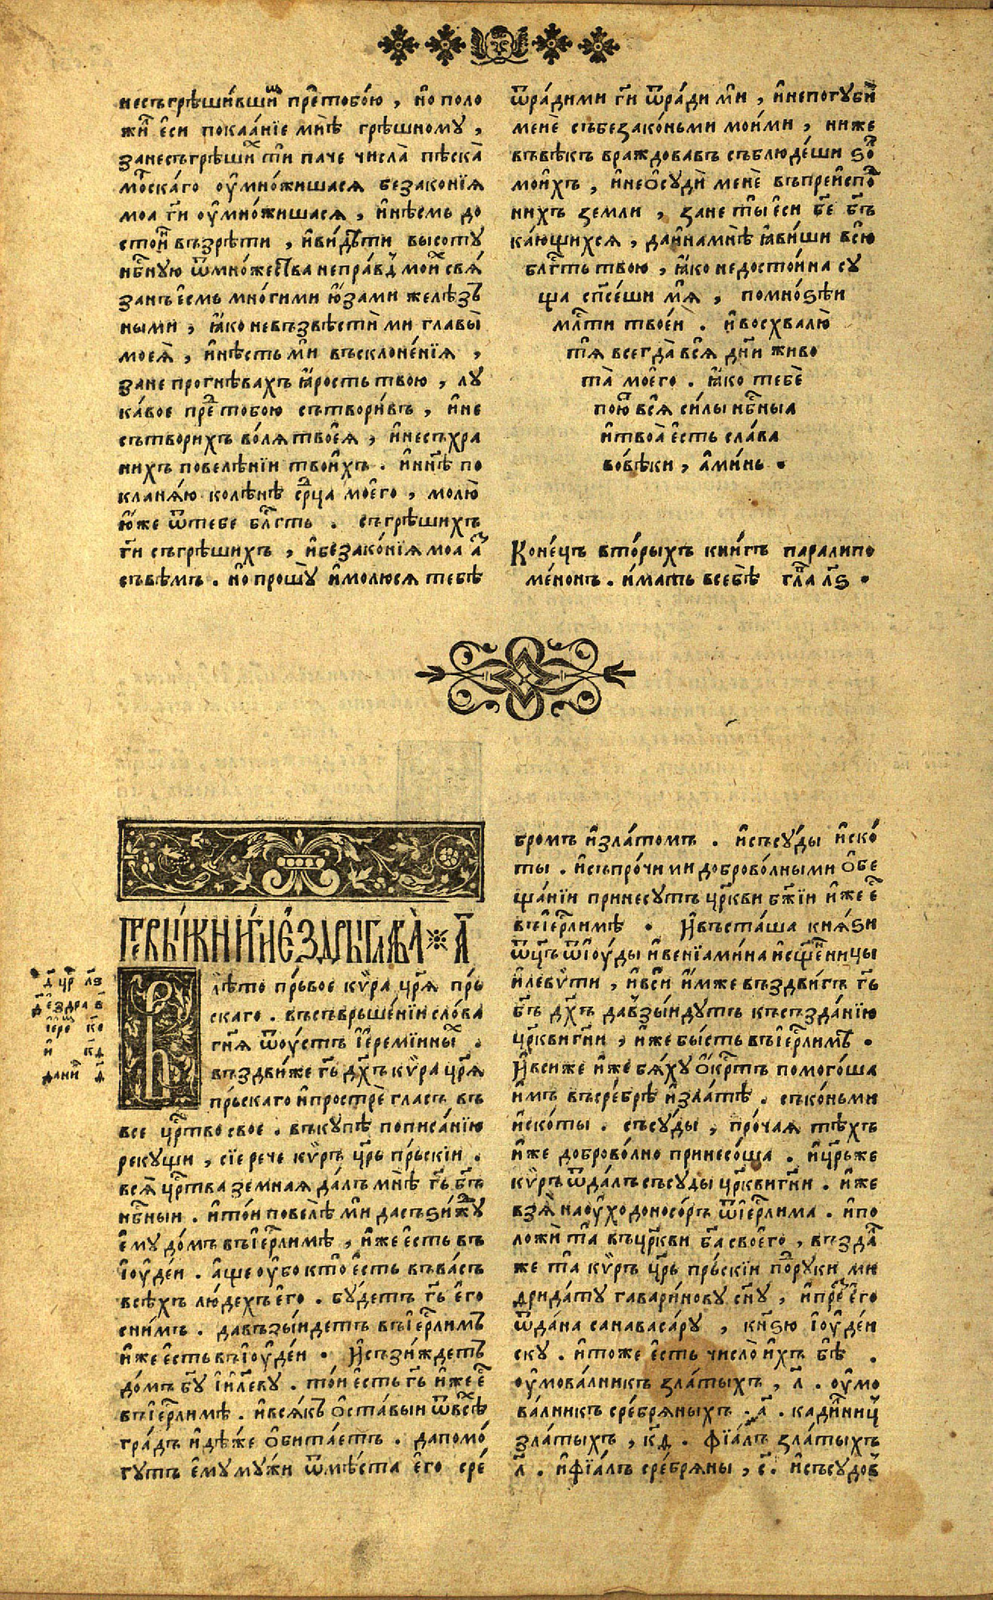 несъгрѣши́вшиⷯ преⷣтобо́ю , но̀ поло
жи́лⸯ є҆сѝ покаа́нїе мнѣ̀ грѣ́шному ,
занесъгрѣши́хⸯ тѝ паче числа̀ пѣска̀
моⷬска́го ѹ҆мно́жишася безако́нїя
моа гⷭ҇и ѹ҆мно́жишася , и҆нѣ́смь до
сто́инⸯ възрѣ́ти , и҆ви́дѣти высоту̀
нбⷭ҇ную ѿмно́жества непра́вдⸯ мои́хⸯ свя́
занъ є҆смь мно́гими ю҆́зами желѣ́зъ
ными , ꙗ҆́ко невъзвѣстѝ ми главы̀
моея̀ , и҆нѣ́сть мѝ въсклоне́нїя ,
зане прогнѣ́вахъ ꙗ҆́рость твою , лу
ка́вое преⷣ тобою сътвори́въ , и҆не
сътвори́хъ во́ля твоея̀ , и҆несъхра
ни́хъ повелѣ́нїи твои́хъ . и҆ нн҃ѣ по
кланя́ю колѣ́нѣ срⷣца моего̀ , молю̀
ю҆́же ѿтебе блгⷣть . съгрѣши́хъ
гⷭ҇и съгрѣши́хъ , и҆безако́нїя моа а҆́зⸯ
съвѣ́мъ . но̀ прошу̀ и҆молю́ся тебѣ̀
ѿра́дими гⷭ҇и ѿра́ди мѝ , и҆непогубѝ
менѐ събезако́ньми мои́ми , ниже
въвѣ́къ враждова́въ съблюде́ши ѕол
мои́хъ , и҆нео҆судѝ менѐ въпреиспоⷣ
нихъ земли , зане ты̀ є҆сѝ бж҃е бг҃ъ
ка́ющихся , даи҆намнѣ̀ ꙗ҆ви́ши всю
блгⷣть твою , ꙗ҆́ко недосто́ина су
ща сп҃се́ши мя̀ , помно́ѕѣи
млⷭ҇ти твое́и . и҆ восхвалю̀
тя̀ всегда̀ вся̀ дн҃и живо
та̀ моего̀ . ꙗ҆́ко тебѐ
пою́тⸯ вся̀ си́лы нбⷭ҇ныа
и҆ твоа̀ є҆сть сла́ва
вовѣ́ки , а҆ми́нь .
Коне́цъ вто́рыхъ кни́гъ паралипо
ме́нонъ . и҆мать всебѣ̀ гла́вⸯ л҃ѕ .
Пе́рвыꙗ кни́ги є҆́здры глава̀ а҃
д҃ цр҃ л҃ѕ
є҆́здра в҃
і҆ере к҃є
и҆ к҃д
дани д҃
Влѣ́то пръ́вое кѵ́ра цр҃я пръ
скаго . въсъврьше́нїи сло́ва
гн҃я ѿу́стъ і҆ереми́ины .
въздви́же гь҃ дх҃ъ кѵ́ра цр҃я
пръ́скаго и҆прострѐ гласъ въ
все црⷭ҇тво свое . въку́пѣ пописа́нїю
реку́щи , сїе рече кѵ́ръ цр҃ь пръ́скїи .
вся̀ црⷭ҇тва земная да́лъ мнѣ̀ гь҃ бг҃ъ
нбⷭ҇ныи . и҆то́и повелѣ̀ мѝ дасъѕи́жду
є҆му до́мъ въі҆ерⷭ҇ли́мѣ , и҆́же є҆́сть въ
і҆ѹде́и . а҆́ще ѹ҆́бо кто̀ є҆сть въва́съ
всѣ́хъ лю́дехъ є҆го̀ . бу́детъ гь҃ є҆го
сни́мъ . давъзы́идетъ въі҆ерⷭ҇ли́мъ
и҆́же є҆́сть въі҆ѹде́и . И҆съзи́ждетъ
до́мъ бг҃у і҆и҃леву . то́и є҆сть гь҃ и҆́же є҆́сⷮ
въі҆ерⷭ҇ли́мѣ . и҆вся́къ о҆ста́выи ѿвсѣ́хⸯ
гра́дъ и҆дѣ́же о҆бита́етъ . дапомо́
гутъ є҆му му́жи ѿмѣ́ста є҆го̀ сре́
бромъ и҆зла́томъ . и҆съсу́ды и҆ско́
ты . и҆съпро́чими доброво́лными о҆бе
ща́нїи принесу́тъ цр҃кви бж҃їи и҆́же є҆́сⷮ
въі҆ерⷭ҇ли́мѣ . И҆въста́ша кня́ѕи
ѿц҃ъ ѿі҆ѹ́ды и҆венїами́на и҆сщ҃е́нницы
и҆леѵ́ти , и҆всѝ и҆́мже въздви́гъ гь҃
бг҃ъ дх҃ъ давъзы́идутъ късъзда́нїю
цр҃кви гн҃и , и҆́же бы́сть въі҆ерⷭ҇ли́мѣ .
И҆всиже и҆́же бя́ху о҆́крⷭ҇тъ помого́ша
и҆́мъ въсребрѣ̀ и҆зла́тѣ . съко́ньми
и҆ско́ты . съсу́ды , про́чая тѣ́хъ
и҆́же доброво́лно принесо́ша . и҆цр҃ьже
кѵ́ръ ѿда́лъ съсу́ды цр҃кви гн҃и . и҆́же
взя̀ наѹходоно́соръ ѿі҆ерⷭ҇ли́ма . и҆по
ложѝ та̀ въцр҃кви бг҃а своего̀ , възда́лⸯ
же та̀ кѵ́ръ цр҃ь пръ́скїи поⷣ руки ми
дрида́ту гавари́нову сн҃у , и҆преⷣ є҆го
ѿда́на санаваса́ру , кн҃ѕю і҆ѹде́и
ску . и҆тоже є҆́сть число̀ и҆́хъ бѣ̀ .
ѹ҆мова́лникъ зла́тыхъ , л҃ . ѹ҆мо
ва́лникъ сре́бряныхъ , а҃ . кади́лницⸯ
зла́тыхъ , к҃д . фїа́лъ зла́тыхъ
л҃ . и҆фїа́лъ сре́бряны , с҃ . и҆съсудо́въ